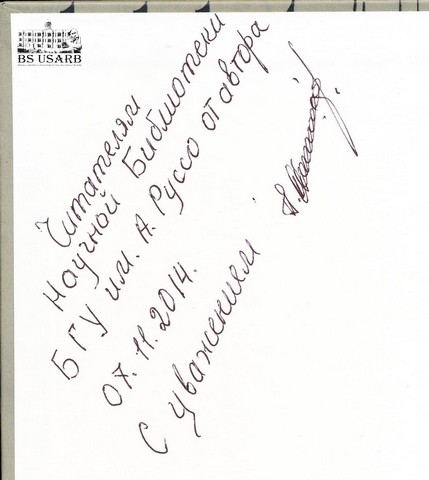 BS USARB
Читателям
Научной Библиотеки
БГУ им. А. Руссо от автора
07.11.2014.
С уважением